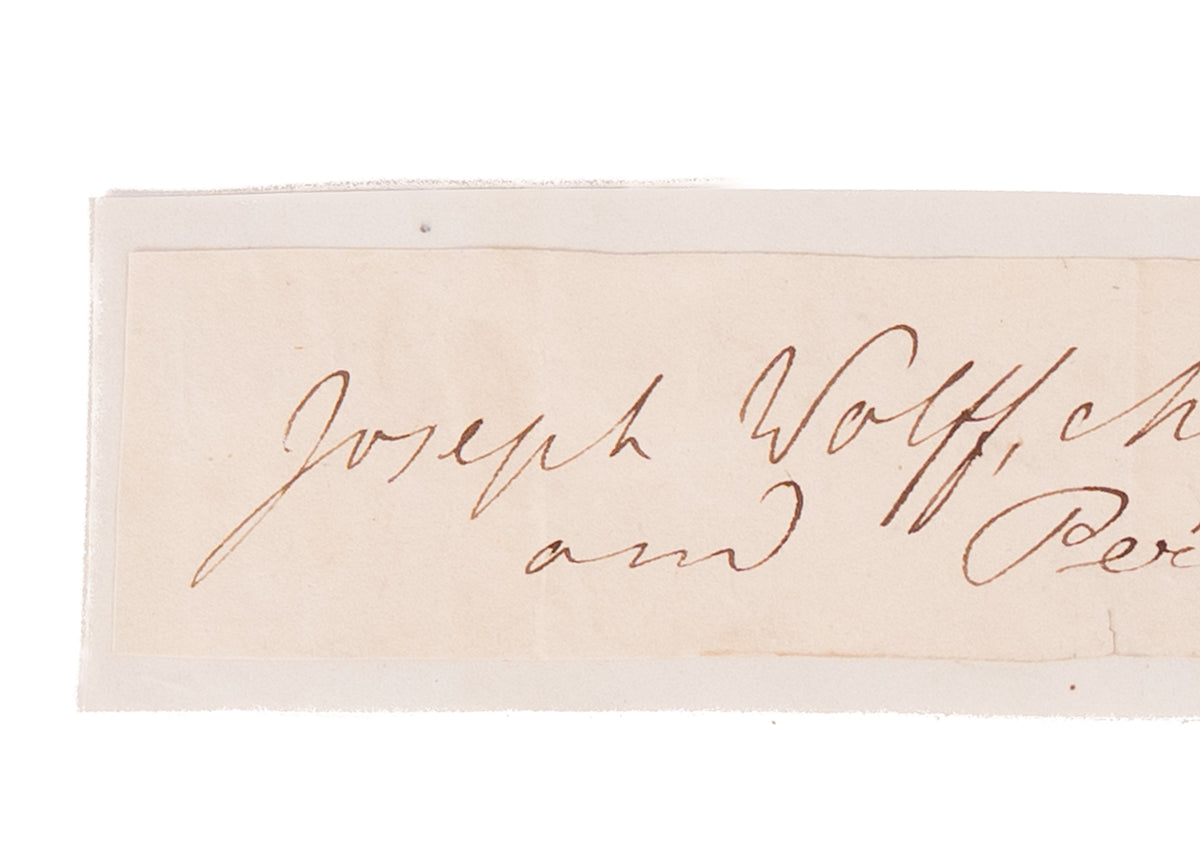 Joseph Wolff,
and